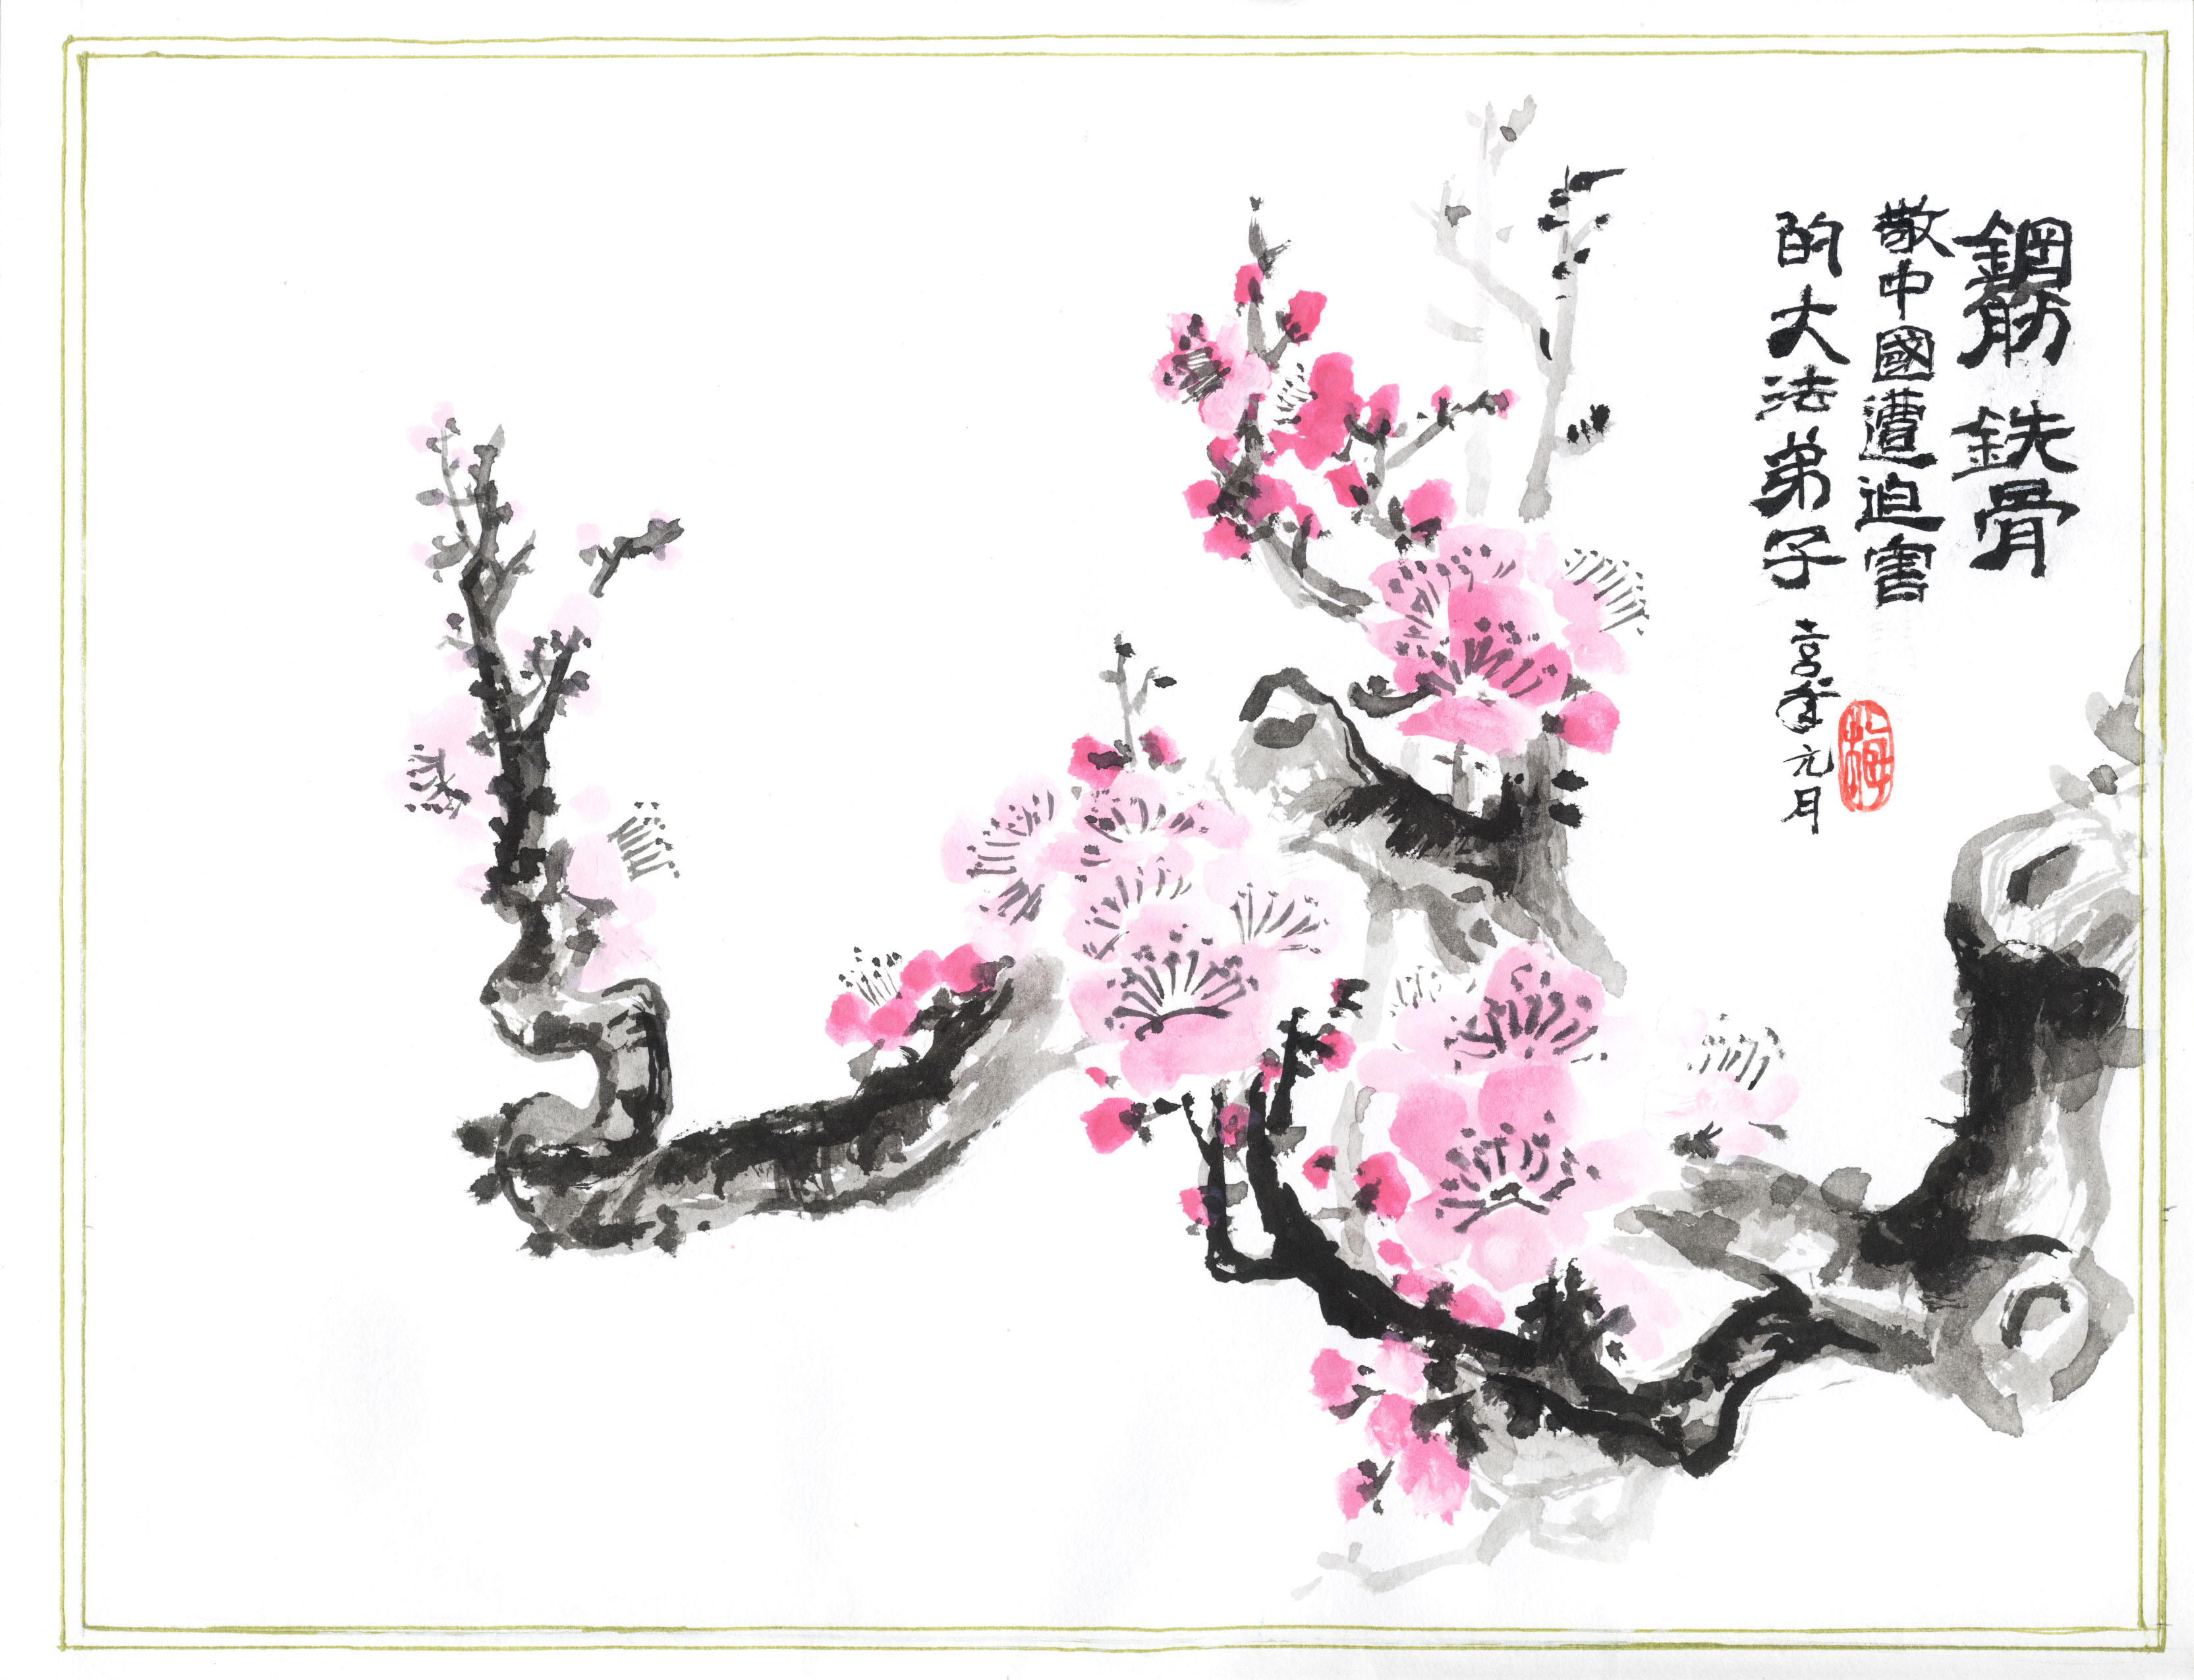 鋼筋 銑骨
敬中國遭迫害
的大法弟子
元月
梅